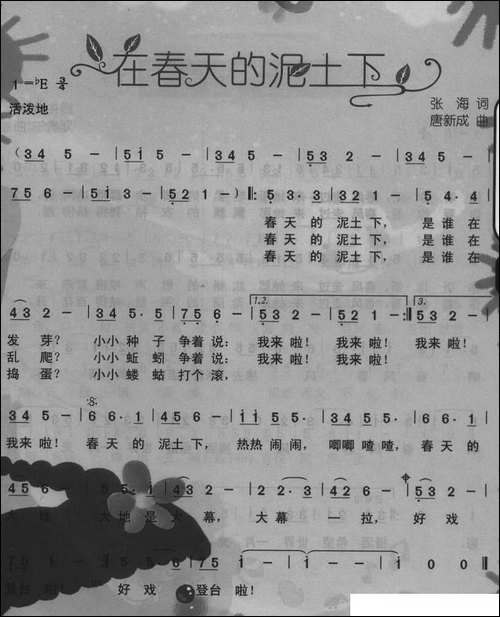 在春天的泥土下
1=♭E
活泼地
张海 词
唐新成 曲
( 3 4 5 - | 5 1̇ 5 - | 3 4 5 - | 5 3 2 - | 3 4 5 - | 5 1̇ 5 -
7 5 6 - | 5 3 1 - | 5 2 1 - ) ‖: 5 3· 3 | 3 2 1 - | 5 4· 4
春天的泥土下， 是谁在
春天的泥土下， 是谁在
春天的泥土下， 是谁在
4 3 2 - | 3 4 5· | 4 5· | 7 5 6 - | 1.2. 5 3 2 - | 5 2 1 - :‖ 3. 5 3 2 -
发芽？ 小小种子争着说： 我来啦！ 我来啦！ 我来啦！
乱爬？ 小小蚯蚓争着说： 我来啦！ 我来啦！
捣蛋？ 小小蝼蛄打个滚，
3 4 5 - | 6 6· 1 | 4 5 - | 1̇ 1̇ 5 5 | 3 4 5 5· | 6 6· 1
我来啦！ 春天的泥土下， 热热闹闹， 唧唧喳喳， 春天的
4 5 - | 5 5· 1 | 4 3 2 - | 2 2· 3 | 4 2 6 - | 5 3 2 -
大地是大幕， 大幕一拉， 好戏
好戏 登台 啦！